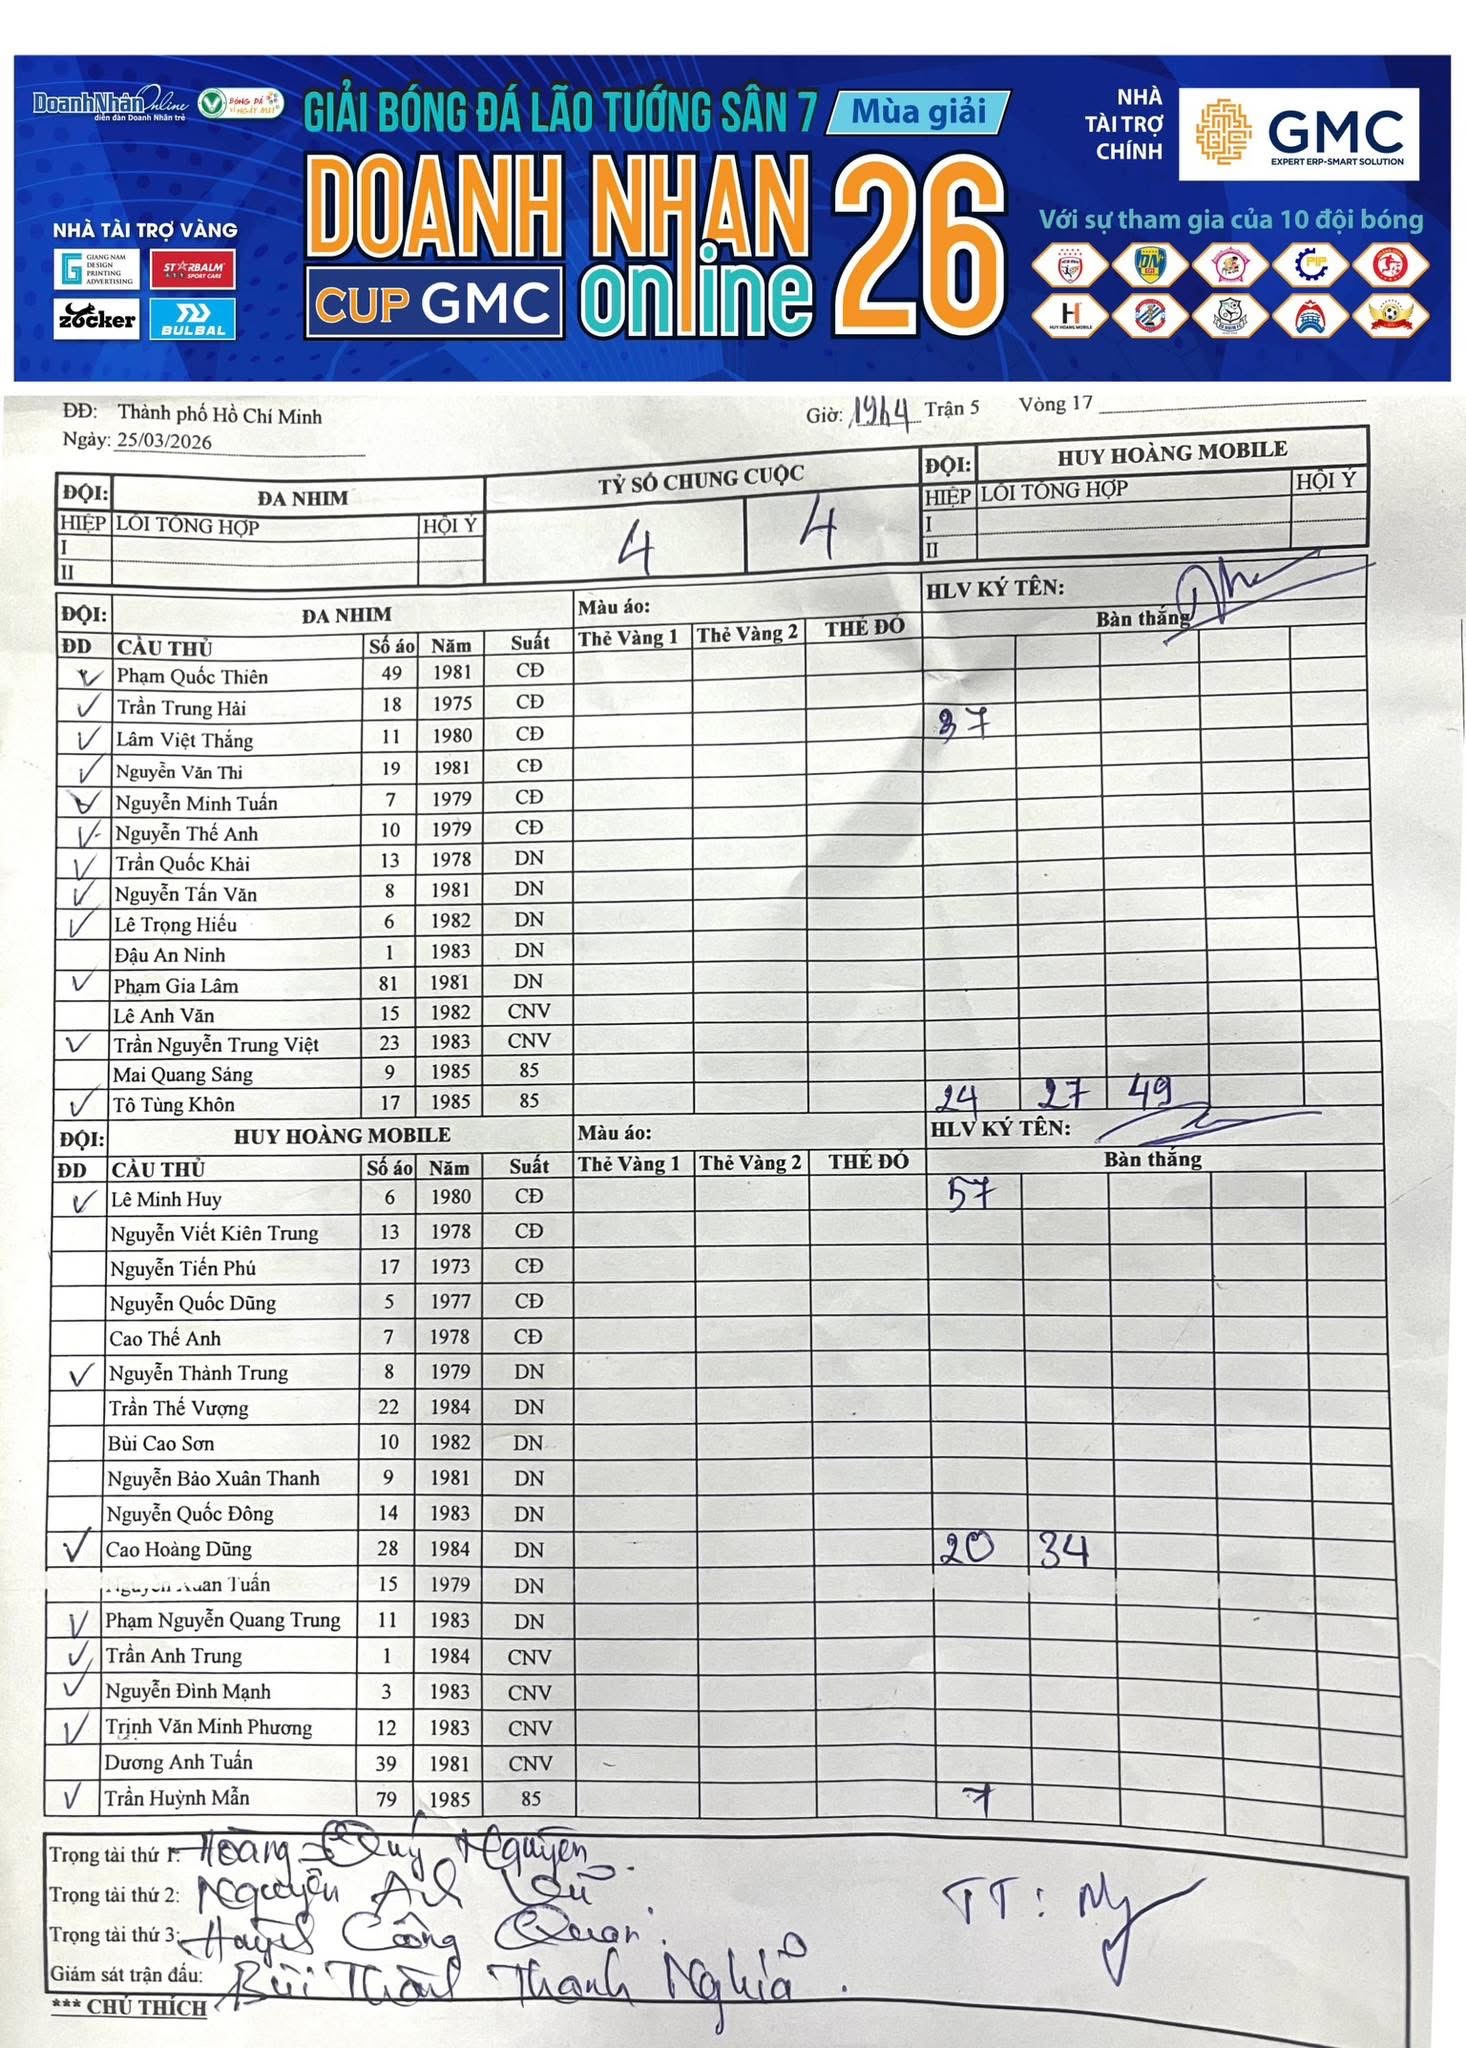 DoanhNhânOnline
diễn đàn Doanh Nhân trẻ
BÓNG ĐÁ
VÌ NGÀY MAI
GIẢI BÓNG ĐÁ LÃO TƯỚNG SÂN 7 Mùa giải
DOANH NHAN 26
CUP GMC online
NHÀ TÀI TRỢ VÀNG
GIANG NAM
DESIGN
PRINTING
ADVERTISING
STARBALM
SPORT CARE
zocker
BULBAL
NHÀ
TÀI TRỢ
CHÍNH
GMC
EXPERT ERP-SMART SOLUTION
Với sự tham gia của 10 đội bóng
PIP
H
HUY HOANG MOBILE
ĐĐ: Thành phố Hồ Chí Minh
Giờ: 19h4 Trận 5 Vòng 17
Ngày: 25/03/2026
ĐỘI: ĐA NHIM TỶ SỐ CHUNG CUỘC ĐỘI: HUY HOÀNG MOBILE
HIỆP LỖI TỔNG HỢP HỘI Ý 4 4 HIỆP LỖI TỔNG HỢP HỘI Ý
I I
II II
ĐỘI: ĐA NHIM Màu áo: HLV KÝ TÊN:
ĐD CẦU THỦ Số áo Năm Suất Thẻ Vàng 1 Thẻ Vàng 2 THẺ ĐỎ Bàn thắng
Phạm Quốc Thiên 49 1981 CĐ
Trần Trung Hải 18 1975 CĐ
Lâm Việt Thắng 11 1980 CĐ 37
Nguyễn Văn Thi 19 1981 CĐ
Nguyễn Minh Tuấn 7 1979 CĐ
Nguyễn Thế Anh 10 1979 CĐ
Trần Quốc Khải 13 1978 DN
Nguyễn Tấn Văn 8 1981 DN
Lê Trọng Hiếu 6 1982 DN
Đậu An Ninh 1 1983 DN
Phạm Gia Lâm 81 1981 DN
Lê Anh Văn 15 1982 CNV
Trần Nguyễn Trung Việt 23 1983 CNV
Mai Quang Sáng 9 1985 85
Tô Tùng Khôn 17 1985 85 24 27 49
ĐỘI: HUY HOÀNG MOBILE Màu áo: HLV KÝ TÊN:
ĐD CẦU THỦ Số áo Năm Suất Thẻ Vàng 1 Thẻ Vàng 2 THẺ ĐỎ Bàn thắng
Lê Minh Huy 6 1980 CĐ 57
Nguyễn Viết Kiên Trung 13 1978 CĐ
Nguyễn Tiến Phú 17 1973 CĐ
Nguyễn Quốc Dũng 5 1977 CĐ
Cao Thế Anh 7 1978 CĐ
Nguyễn Thành Trung 8 1979 DN
Trần Thế Vượng 22 1984 DN
Bùi Cao Sơn 10 1982 DN
Nguyễn Bảo Xuân Thanh 9 1981 DN
Nguyễn Quốc Đông 14 1983 DN
Cao Hoàng Dũng 28 1984 DN 20 34
Nguyễn Xuân Tuấn 15 1979 DN
Phạm Nguyễn Quang Trung 11 1983 DN
Trần Anh Trung 1 1984 CNV
Nguyễn Đình Mạnh 3 1983 CNV
Trịnh Văn Minh Phương 12 1983 CNV
Dương Anh Tuấn 39 1981 CNV
Trần Huỳnh Mẫn 79 1985 85 7
Trọng tài thứ 1: Hoàng Quý Nguyên
Trọng tài thứ 2: Nguyễn Anh Vũ TT:
Trọng tài thứ 3: Huỳnh Công Quan
Giám sát trận đấu: Bùi Thanh Nghĩa
*** CHÚ THÍCH